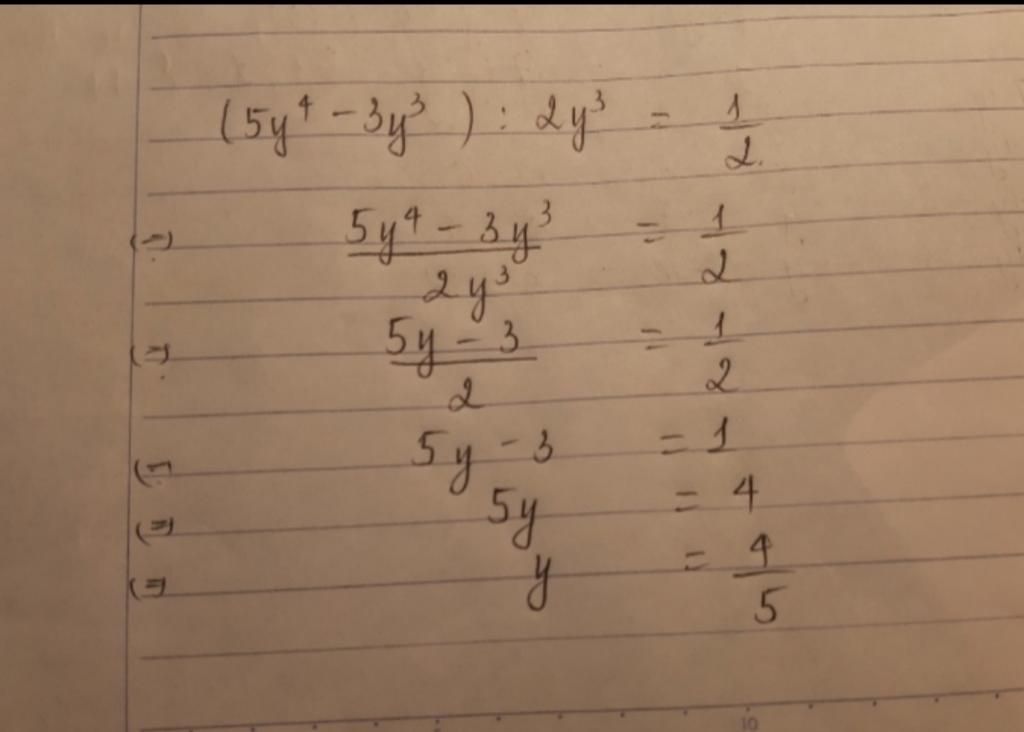 (5y⁴ - 3y³) : 2y³ = 1/2
(=) (5y⁴ - 3y³)/(2y³) = 1/2
(=) (5y - 3)/2 = 1/2
(=) 5y - 3 = 1
(=) 5y = 4
(=) y = 4/5
10